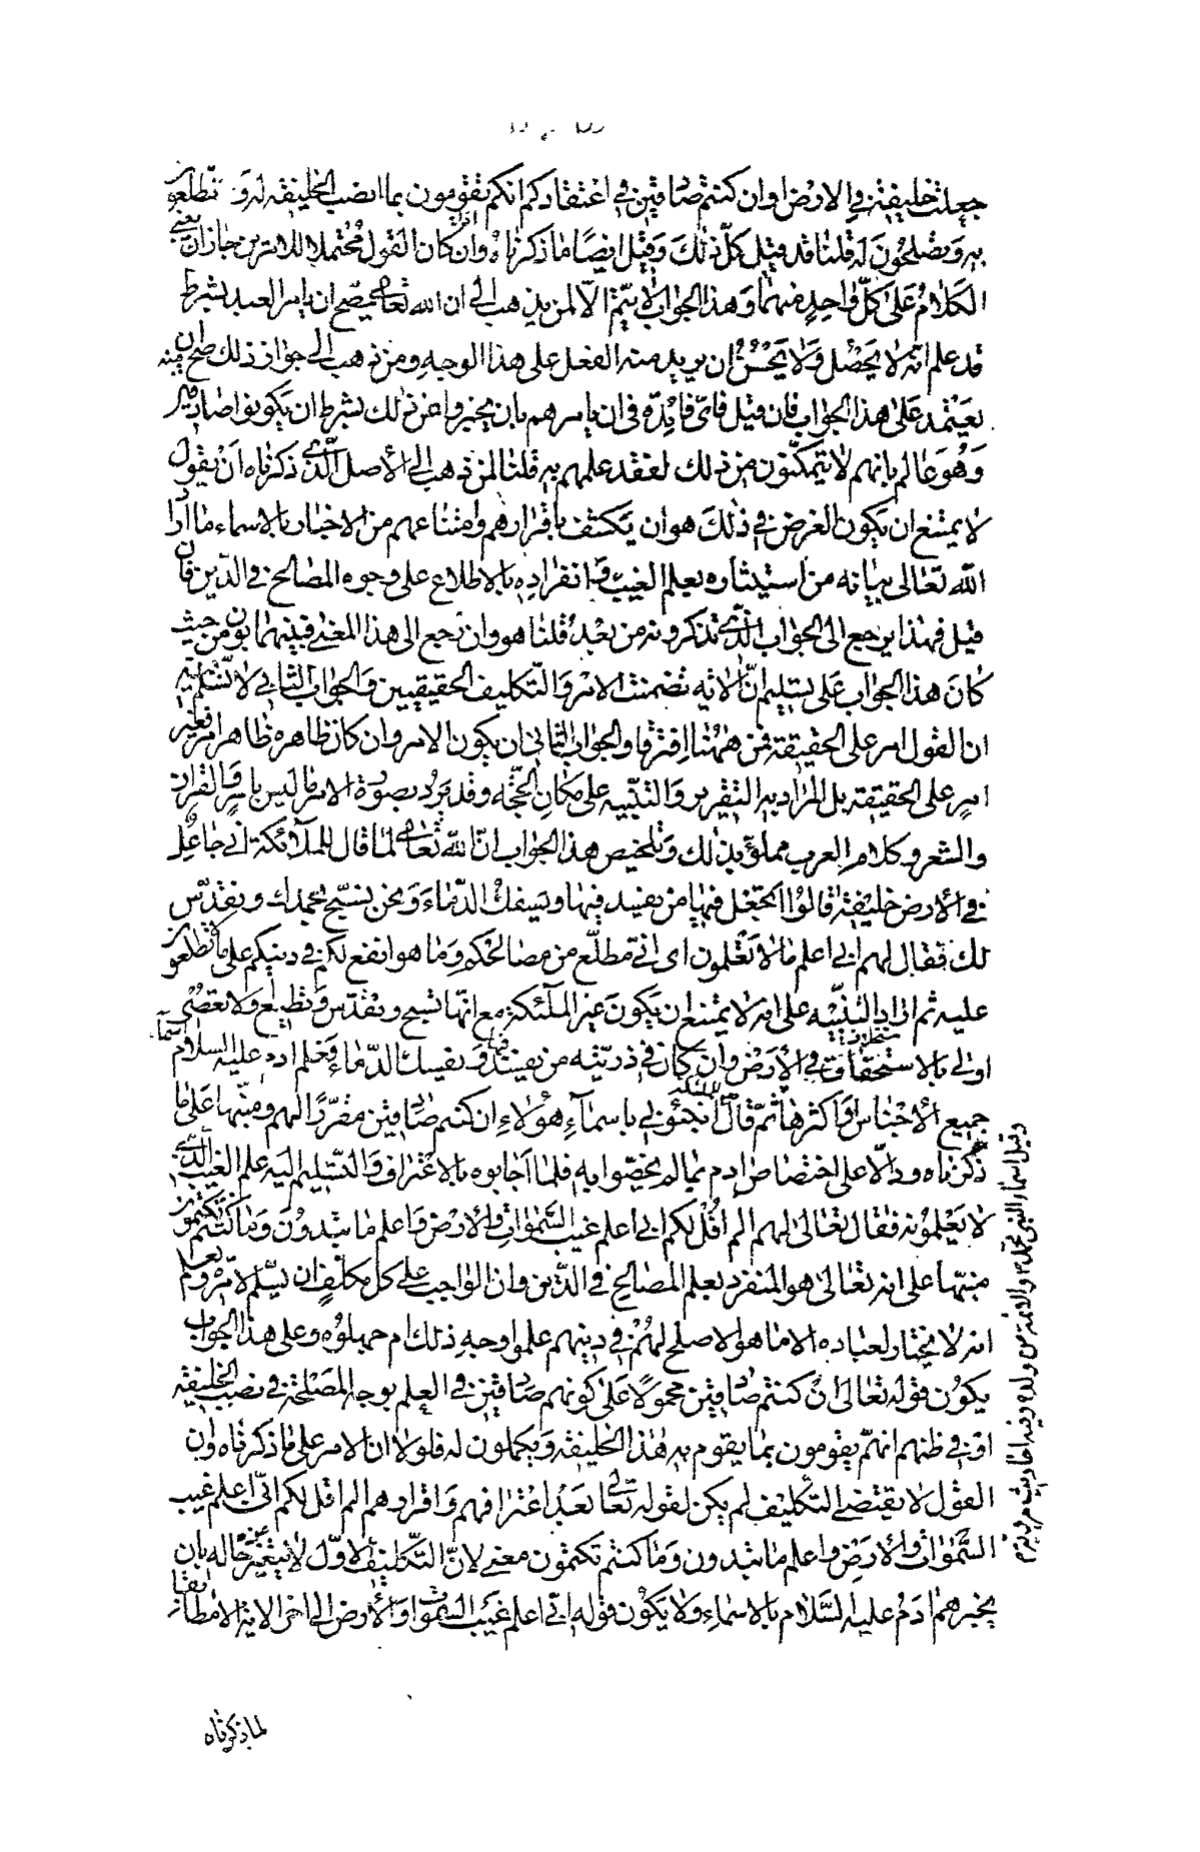 جعلت خليفة في الارض او ان كنتم صادقين في اعتقادكم انكم تقومون بما انصب الخليفة له و تطلعون
به و تصلحون له قلنا قد قيل كلّ ذلك وقيل ايضًا ما ذكرناه وان كان القول مُحتملا للامرين جاز ان يبنى
الكلام على كلّ واحدٍ منهما وهذا الجواب لا يتمّ الّا لمن يذهب الى ان الله تعالى يصحّ ان يامر العبد بشرط
قد علم انّه لا يحصل ولا يحسُنُ ان يريد منه الفعل على هذا الوجه ومن ذهب الى جواز ذلك صح ان منه
يعتمد على هذا الجواب فان قيل فاىّ فايدة في ان يامرهم بان يخبروا عن ذلك بشرط ان يكونوا صادقين
وهُوَ عالم بانهم لا يتمكّنون من ذلك لفقد علمهم به قلنا لمن ذهب الى الأصل الّذي ذكرناه ان يقول
لا يمتنع ان يكون الغرض في ذلك هو ان يكشف باقرارهم وامتناعهم من الاخبار بالاسماء ما اراد
الله تعالى بيانه من استيثاره بعلم الغيب وانفراده بالاطلاع على وجوه المصالح في الدّين فان
قيل فهذا يرجع الى الجواب الّذي تذكرونه من بعدُ قلنا هو وان رجع الى هذا المعنى فبينهما بون من حيث
كان هذا الجواب على تسليم انّ الاية تضمنت الامر والتكليف الحقيقيين والجواب الثاني لا نسلم فيه
ان القول امر على الحقيقة فمن ههُنا افترقا والجواب الثاني ان يكون الامر وان كان ظاهره ظاهر امر فغير
امرٍ على الحقيقة بل المراد به التقرير والتنبيه على مكان الحجّة وقد يَرِدُ بصورة الامر ما ليس بامرٍ والقران
والشعر وكلام العرب مملوّ بذلك وتلخيص هذا الجواب انّ الله تعالى لما قال للملائكة اني جاعلٌ
في الأرض خليفة قالُوا اتجعل فيها من يفسد فيها ويسفك الدّماء ونحن نسبّح بحمدك ونقدّس
لك فقال لهم اني اعلم ما لا تعلمون اى اني مطلّع من مصالحكم وما هو انفع لكم في دينكم على ما لا تطلعون
عليه ثم اراد التنبيه على انه لا يمتنع ان يكون غير الملآئكة مع انّها تسبح وتقدّس وتطيع ولا تعصى
اولى بالاستخلاف في الأرض وان كان في ذريّته من يفسد فيها ويسفك الدّماء فعلم ادم عليه السلام اسماء
جميع الأجناس او اكثرها ثمّ قال للملئكة انبئوني باسماء هؤلاء ان كنتم صادقين مقررًا لهم ومنبّها على ما
ذكرناه ودالّا على اختصاص ادم بما لم يخصّوا به فلما اجابوه بالاعتراف والتسليم اليه علم الغيب الّذي
لا يعلمونه فقال تعالى لهم الم اقُل لكم اني اعلم غيب السّموات والارض واعلم ما تبدُون وما كنتم تكتمون
منبّها على انه تعالى هو المنفرد بعلم المصالح في الدّين وان الواجب على كل مكلّفٍ ان يسلّم لامره ويعلم
انه لا يختار لعباده الا ما هو الاصلح لهُم في دينهم علموا وجه ذلك ام جهلوُه وعلى هذا الجواب
يكوُن قوله تعالى ان كنتم صادقين محمولًا على كونهم صادقين في العلم بوجه المصلحة في نصب الخليفة
او في ظنهم انهّم يقومون بما يقوم به هذا الخليفة ويكملون له فلولا ان الامر على ما ذكرناه وان
القول لا يقتضى التكليف لم يكن لقوله تعالى بعد اعترافهم واقرارهم الم اقل لكم اني اعلم غيب
السّموات والأرض واعلم ما تبدون وما كنتم تكتمون معنى لانّ التّكليف الاوّل لا يتغيّر حاله بان
يخبرهم ادمُ عليه السّلام بالاسماء ولا يكون قوله اني اعلم غيب السموات والأرض الى اخر الاية الا مطابقا
لما ذكرناه
وقيل اسماء النبي محمد والائمة من ولده وفيه احاديث مروية